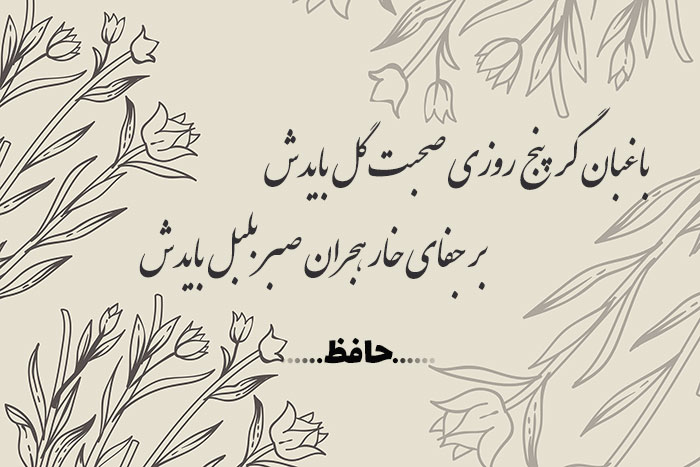 باغبان گر پنج روزی صحبت گل بایدش
بر جفای خار هجران صبر بلبل بایدش
......حافظ......